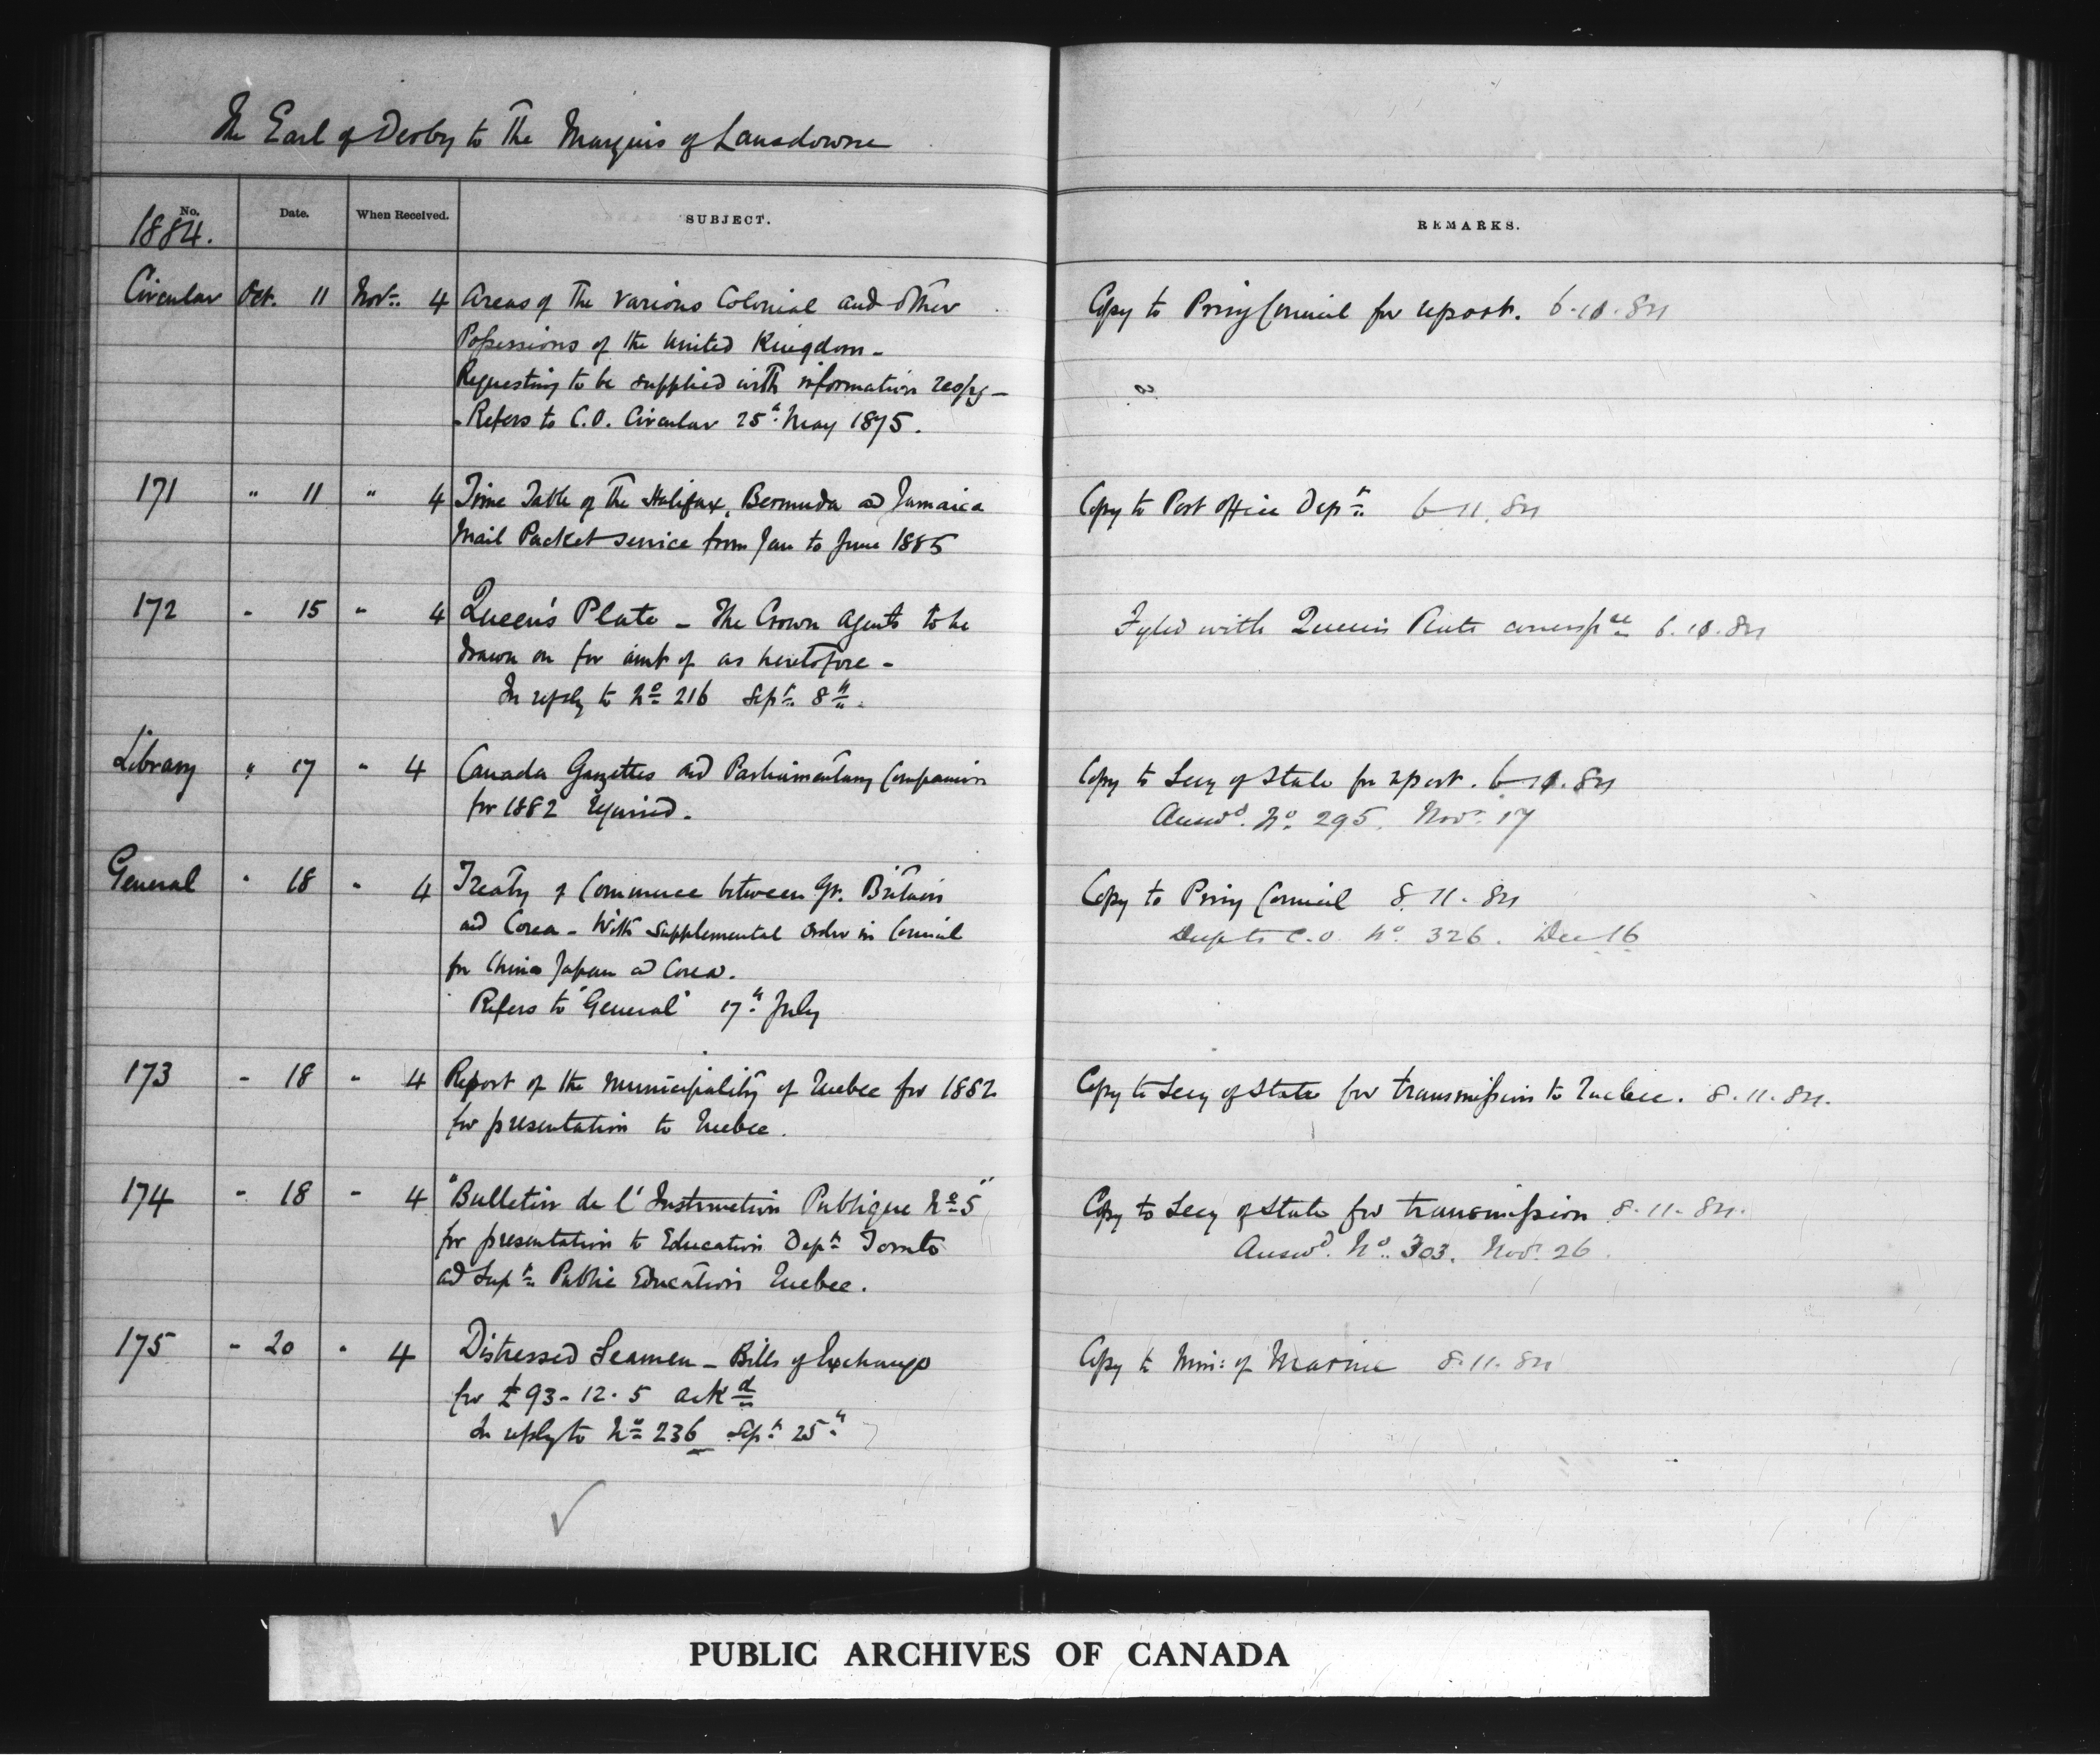 The Earl of Derby to The Marquis of Lansdowne
No. Date. When Received. SUBJECT. REMARKS.
1884.
Circular Oct. 11 Novr. 4 Areas of the various Colonial and other Copy to Privy Council for report. 6.10.84
Possessions of the United Kingdom -
Requesting to be supplied with information respg -
- Refers to C.O. Circular 25th May 1875.
171 " 11 " 4 Time Table of the Halifax, Bermuda and Jamaica Copy to Post Office Dept. 6-11.84
Mail Packet service from Jan to June 1885
172 " 15 " 4 Queen's Plate - The Crown Agents to be Fyled with Queen's Plate corresp.ce 6.10.84
drawn on for amt of as heretofore -
In reply to No 216 Sept. 8th.
Library " 17 " 4 Canada Gazettes and Parliamentary Companion Copy to Secy of State for report. 6-11.84
for 1882 required. Answd. No. 295. Novr. 17
General " 18 " 4 Treaty of Commerce between Gt. Britain Copy to Privy Council 8.11.84
and Corea - With Supplemental Order in Council C.O. No. 326. Dec 16
for China Japan and Corea.
Refers to "General" 17th July
173 " 18 " 4 Report of the Municipality of Quebec for 1882 Copy to Secy of State for transmission to Quebec. 8.11.84.
for presentation to Quebec.
174 " 18 " 4 "Bulletin de l'Instruction Publique No 5" Copy to Secy of State for transmission 8.11.84.
for presentation to Education Dept. Toronto Answd. No. 303. Novr. 26.
and Supt. Public Education Quebec.
175 " 20 " 4 Distressed Seamen - Bills of Exchange Copy to Min: of Marine 8.11.84
for £93-12.5 ackd
In reply to No 236 Sept. 25th
PUBLIC ARCHIVES OF CANADA